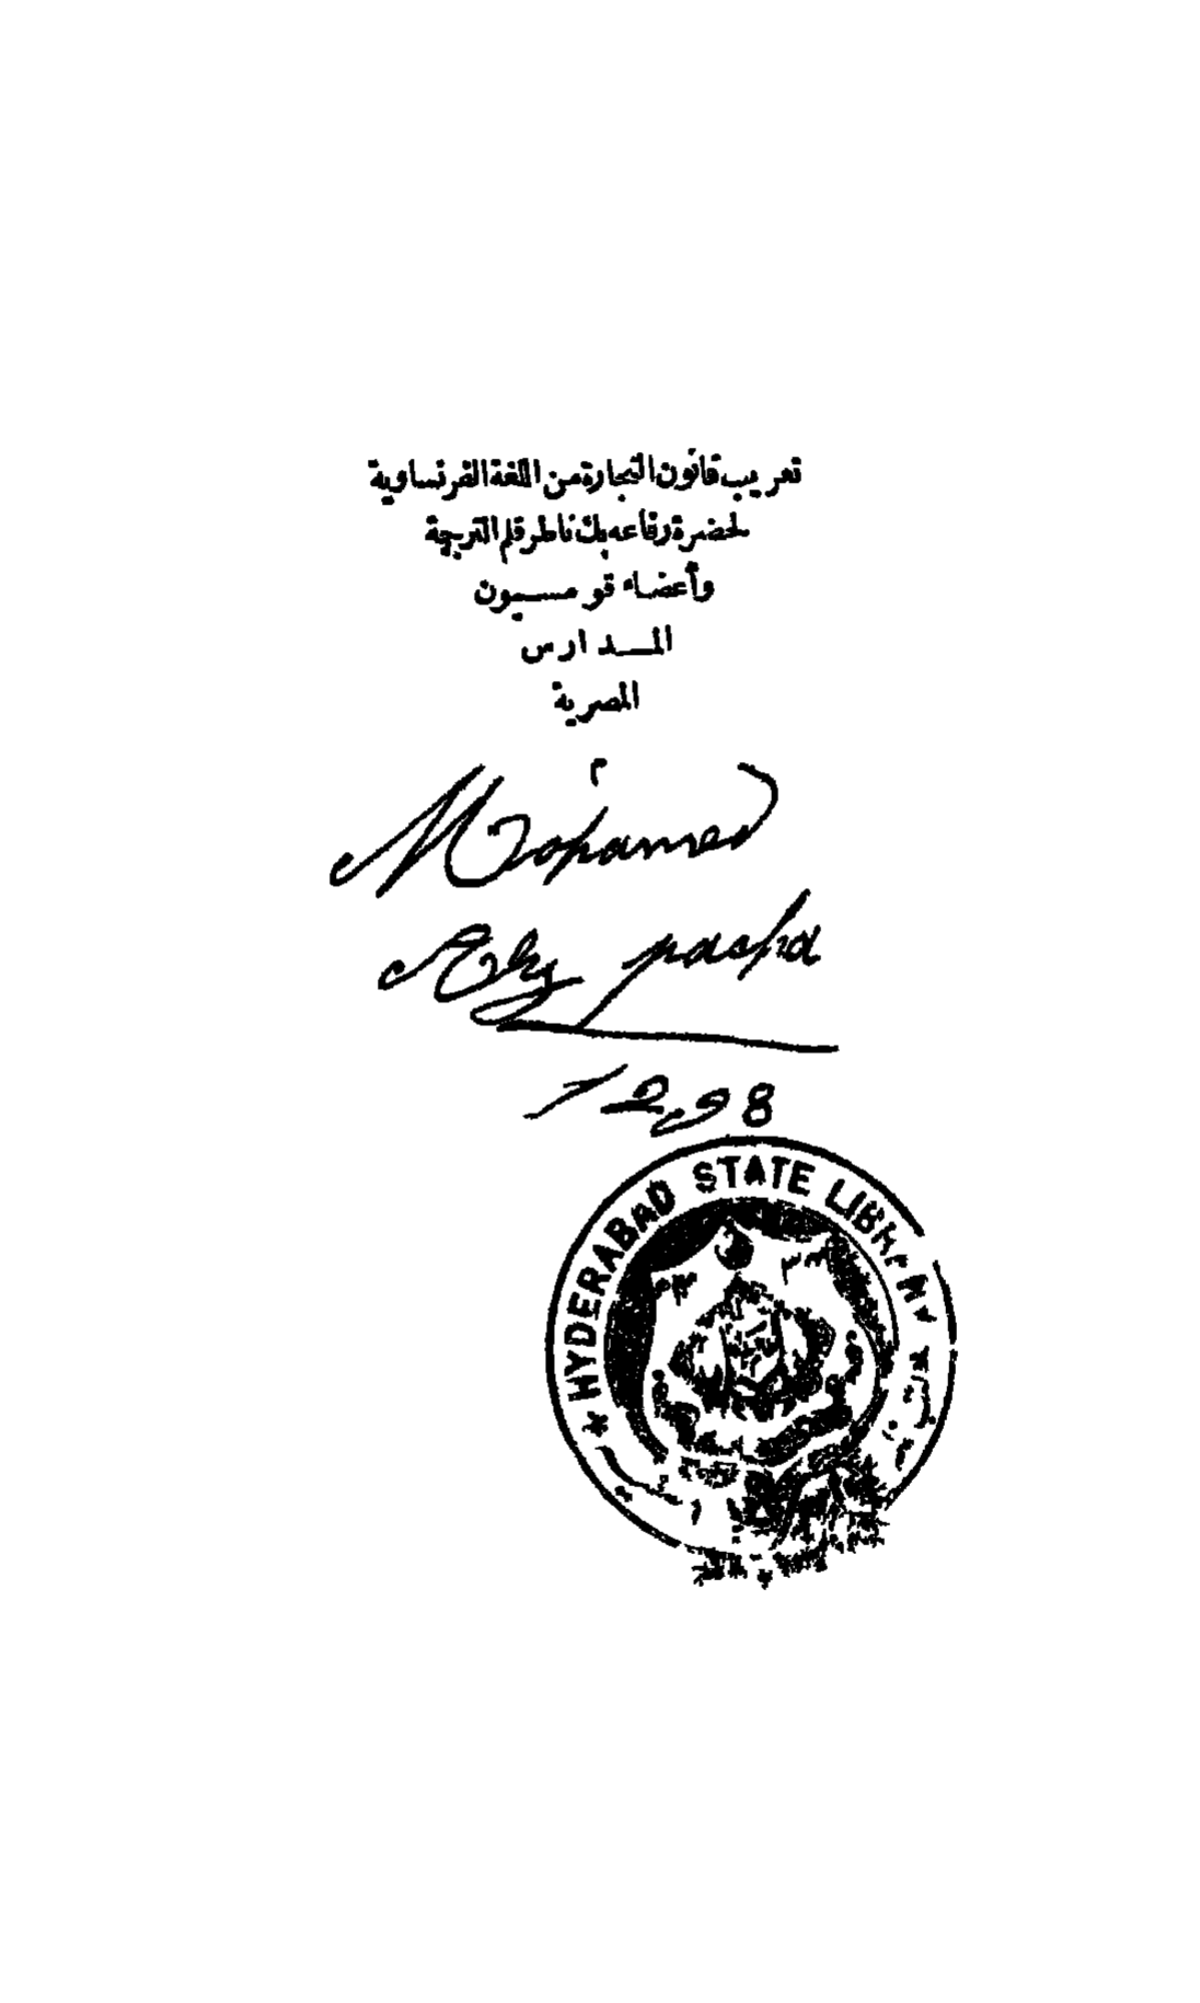 تعريب قانون التجارة من اللغة الفرنساوية
لحضرة رفاعه بك ناظر قلم الترجمة
وأعضاء قومسيون
المدارس
المصرية
م
Mohamed
Aly pacha
1298
HYDERABAD STATE LIBRARY